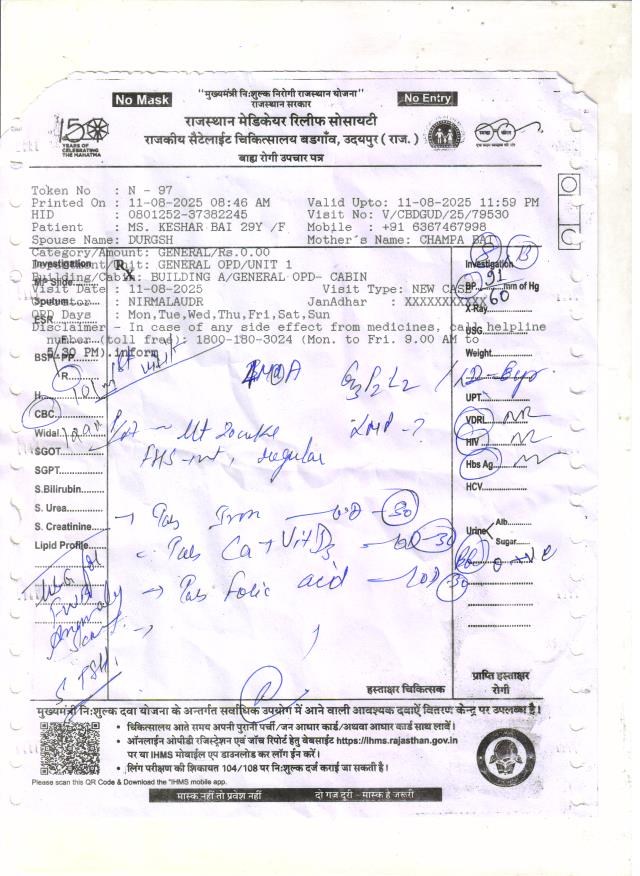 No Mask
"मुख्यमंत्री नि:शुल्क निरोगी राजस्थान योजना"
राजस्थान सरकार
No Entry
राजस्थान मेडिकेयर रिलीफ सोसायटी
राजकीय सैटेलाईट चिकित्सालय बडगाँव, उदयपुर ( राज. )
बाह्य रोगी उपचार पत्र
150
YEARS OF
CELEBRATING
THE MAHATMA
Token No : N - 97
Printed On : 11-08-2025 08:46 AM Valid Upto: 11-08-2025 11:59 PM
HID : 0801252-37382245 Visit No: V/CBDGUD/25/79530
Patient : MS. KESHAR BAI 29Y /F Mobile : +91 6367467998
Spouse Name: DURGSH Mother's Name: CHAMPA BAI
Category/Amount: GENERAL/Rs.0.00
: GENERAL OPD/UNIT 1
: BUILDING A/GENERAL OPD- CABIN
Visit Date : 11-08-2025 Visit Type: NEW CASE
: NIRMALAUDR JanAdhar : XXXXXXXXXXX
OPD Days : Mon,Tue,Wed,Thu,Fri,Sat,Sun
Disclaimer - In case of any side effect from medicines, call helpline
number (toll free): 1800-180-3024 (Mon. to Fri. 9.00 AM to
PM).inform
Investigation
Rx
MP Slide
Sputum
ESR
R
CBC
Widal
SGOT
SGPT
S.Bilirubin
S. Urea
S. Creatinine
Lipid Profile
4MOA G3P2L2
regular
Tab Iron 30
Tab Ca + Vit D3 BD 30
Tab folic acid 30
USG for
Anomaly
Scan
S. TSH
Investigation
BP 91 mm of Hg
60
X-Ray
USG
Weight
UPT
VDRL NR
HIV NR
Hbs Ag N
HCV
Urine Alb.
Sugar
O +ve
हस्ताक्षर चिकित्सक
प्राप्ति हस्ताक्षर
रोगी
मुख्यमंत्री नि:शुल्क दवा योजना के अन्तर्गत सर्वाधिक उपयोग में आने वाली आवश्यक दवाऐं वितरण केन्द्र पर उपलब्ध है।
• चिकित्सालय आते समय अपनी पुरानी पर्ची/जन आधार कार्ड/अथवा आधार कार्ड साथ लावें।
• ऑनलाईन ओपीडी रजिस्ट्रेशन एवं जाँच रिपोर्ट हेतु वेबसाईट https://ihms.rajasthan.gov.in
पर या IHMS मोबाईल एप डाउनलोड कर लॉग ईन करें।
• लिंग परीक्षण की शिकायत 104/108 पर नि:शुल्क दर्ज कराई जा सकती है।
Please scan this QR Code & Download the "IHMS mobile app.
मास्क नहीं तो प्रवेश नहीं दो गज दूरी - मास्क है जरूरी